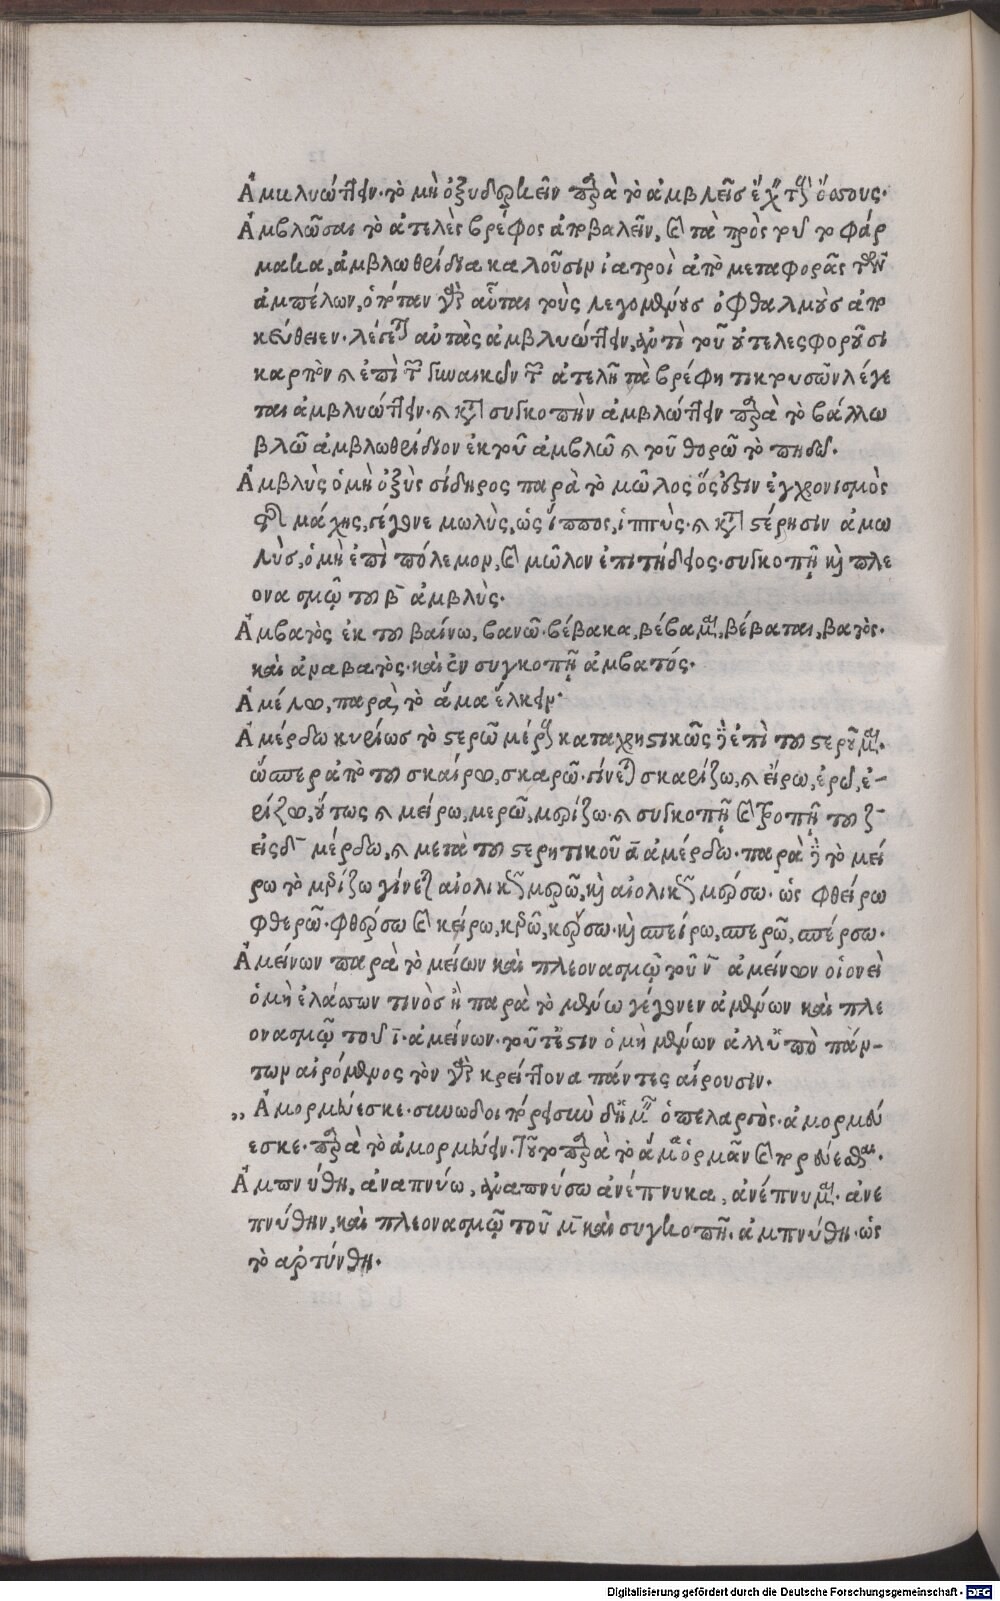 Ἀμυλυώττειν· τὸ μὴ ὀξυδορκεῖν παρὰ τὸ ἀμβλεῖς ἔχειν τοὺς ὄπους·
Ἀμβλῶσαι τὸ ἀτελὲς βρέφος ἀποβαλεῖν, καὶ τὰ πρὸς τοῦτο φάρ
μακα, ἀμβλωθρίδια καλοῦσιν ἰατροὶ ἀπὸ μεταφορᾶς τῶν
ἀμπέλων, ὁπόταν γὰρ αὗται τοὺς λεγομένους ὀφθαλμοὺς ἀπο
λέγεται αὐτὰς ἀμβλυώττειν, ἀντὶ τοῦ ἀτελεσφοροῦσι
καρπὸν καὶ ἐπὶ τῶν γυναικῶν τῶν ἀτελῆ τὰ βρέφη τικτουσῶν λέγε
ται ἀμβλυώττειν· καὶ κατὰ συγκοπὴν ἀμβλώττειν παρὰ τὸ βάλλω
βλῶ ἀμβλωθρίδιον ἐκ τοῦ ἀμβλῶ καὶ τοῦ θορῶ τὸ πηδῶ·
Ἀμβλὺς ὁ μὴ ὀξὺς σίδηρος παρὰ τὸ μῶλος ὅς ἐστιν ἐγχρονισμὸς
μάχης, γέγονε μωλὺς, ὡς ἵππος, ἱππὺς· καὶ κατὰ στέρησιν ἀμω
λὺς, ὁ μὴ ἐπὶ πόλεμον, καὶ μῶλον ἐπιτήδειος· συγκοπῇ καὶ πλε
ονασμῷ τοῦ β ἀμβλὺς·
Ἀμβατὸς ἐκ τοῦ βαίνω, βανῶ· βέβακα, βέβαμαι, βέβαται, βατὸς·
καὶ ἀναβατὸς· καὶ ἐν συγκοπῇ ἀμβατός·
Ἀμέλγω, παρὰ τὸ ἅμα ἕλκειν·
Ἀμέρδω κυρίως τὸ στερῶ μέρους καταχρηστικῶς δὲ ἐπὶ τοῦ στεροῦμαι·
ὥσπερ ἀπὸ τοῦ σκαίρω, σκαρῶ· γίνεται σκαρίζω, καὶ εἴρω, ἐρῶ, ἐ-
ρίζω, οὕτως καὶ μείρω, μερῶ, μερίζω· καὶ συγκοπῇ καὶ τροπῇ τοῦ ζ
εἰς δ μέρδω, καὶ μετὰ τοῦ στερητικοῦ α ἀμέρδω· παρὰ δὲ τὸ μεί
ρω τὸ μερίζω γίνεται αἰολικῶς μερῶ, καὶ αἰολικῶς μέρσω· ὡς φθείρω
φθερῶ· φθέρσω καὶ κείρω, κερῶ, κέρσω· καὶ πείρω, περῶ, πέρσω·
Ἀμείνων παρὰ τὸ μείων καὶ πλεονασμῷ τοῦ ν ἀμείνων οἱονεὶ
ὁ μὴ ἐλάσσων τινὸς ἢ παρὰ τὸ μένω γέγονεν ἀμένων καὶ πλε
ονασμῷ τοῦ ι· ἀμείνων· τοῦτέστιν ὁ μὴ μένων ἀλλ' ὑπὸ πάν-
των αἱρόμενος τὸν γὰρ κρείττονα πάντες αἱροῦσιν·
Ἀμπνύθη, ἀναπνύω, ἀναπνύσω ἀνέπνυκα, ἀνέπνυμαι· ἀνε
πνύθην, καὶ πλεονασμῷ τοῦ μ καὶ συγκοπῇ· ἀμπνύθη· ὡς
τὸ ἀρτύνθη·
Digitalisierung gefördert durch die Deutsche Forschungsgemeinschaft - DFG